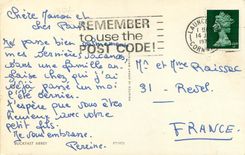 Chère Manon et
cher Paul
REMEMBER
to use the
POST CODE!
LAUNCESTON
CORNWALL
Me passe bien
mes dernières vacances
dans une famille an-
glaise chez qui j'ai
déjà passé un moi
d'été dernier.
J'espère que vous êtes
heureux avec votre
petit fils.
Je vous embrasse.
Perrine.
Mr et Mme Raissac
31 - Revel.
FRANCE.
BUCKFAST ABBEY